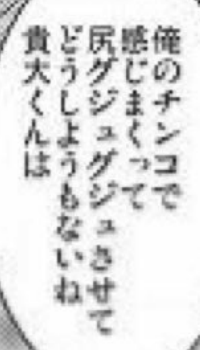 俺のチンコで
感じまくって
尻グジュグジュさせて
どうしようもないね
貴大くんは